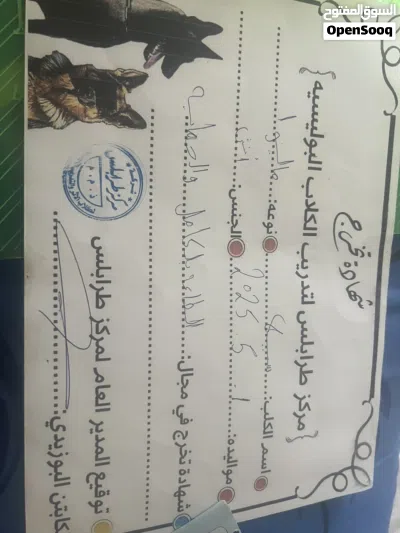 السوق المفتوح
OpenSooq
شهادة تخرج
{مركز طرابلس لتدريب الكلاب البوليسيه}
اسم الكلب: نوعه:
مواليده: 2025 5 1 الجنس: أنثى
شهادة تخرج في مجال: الطاعة بالكامل والحماية
توقيع المدير العام لمركز طرابلس
كابتن البوزيدي